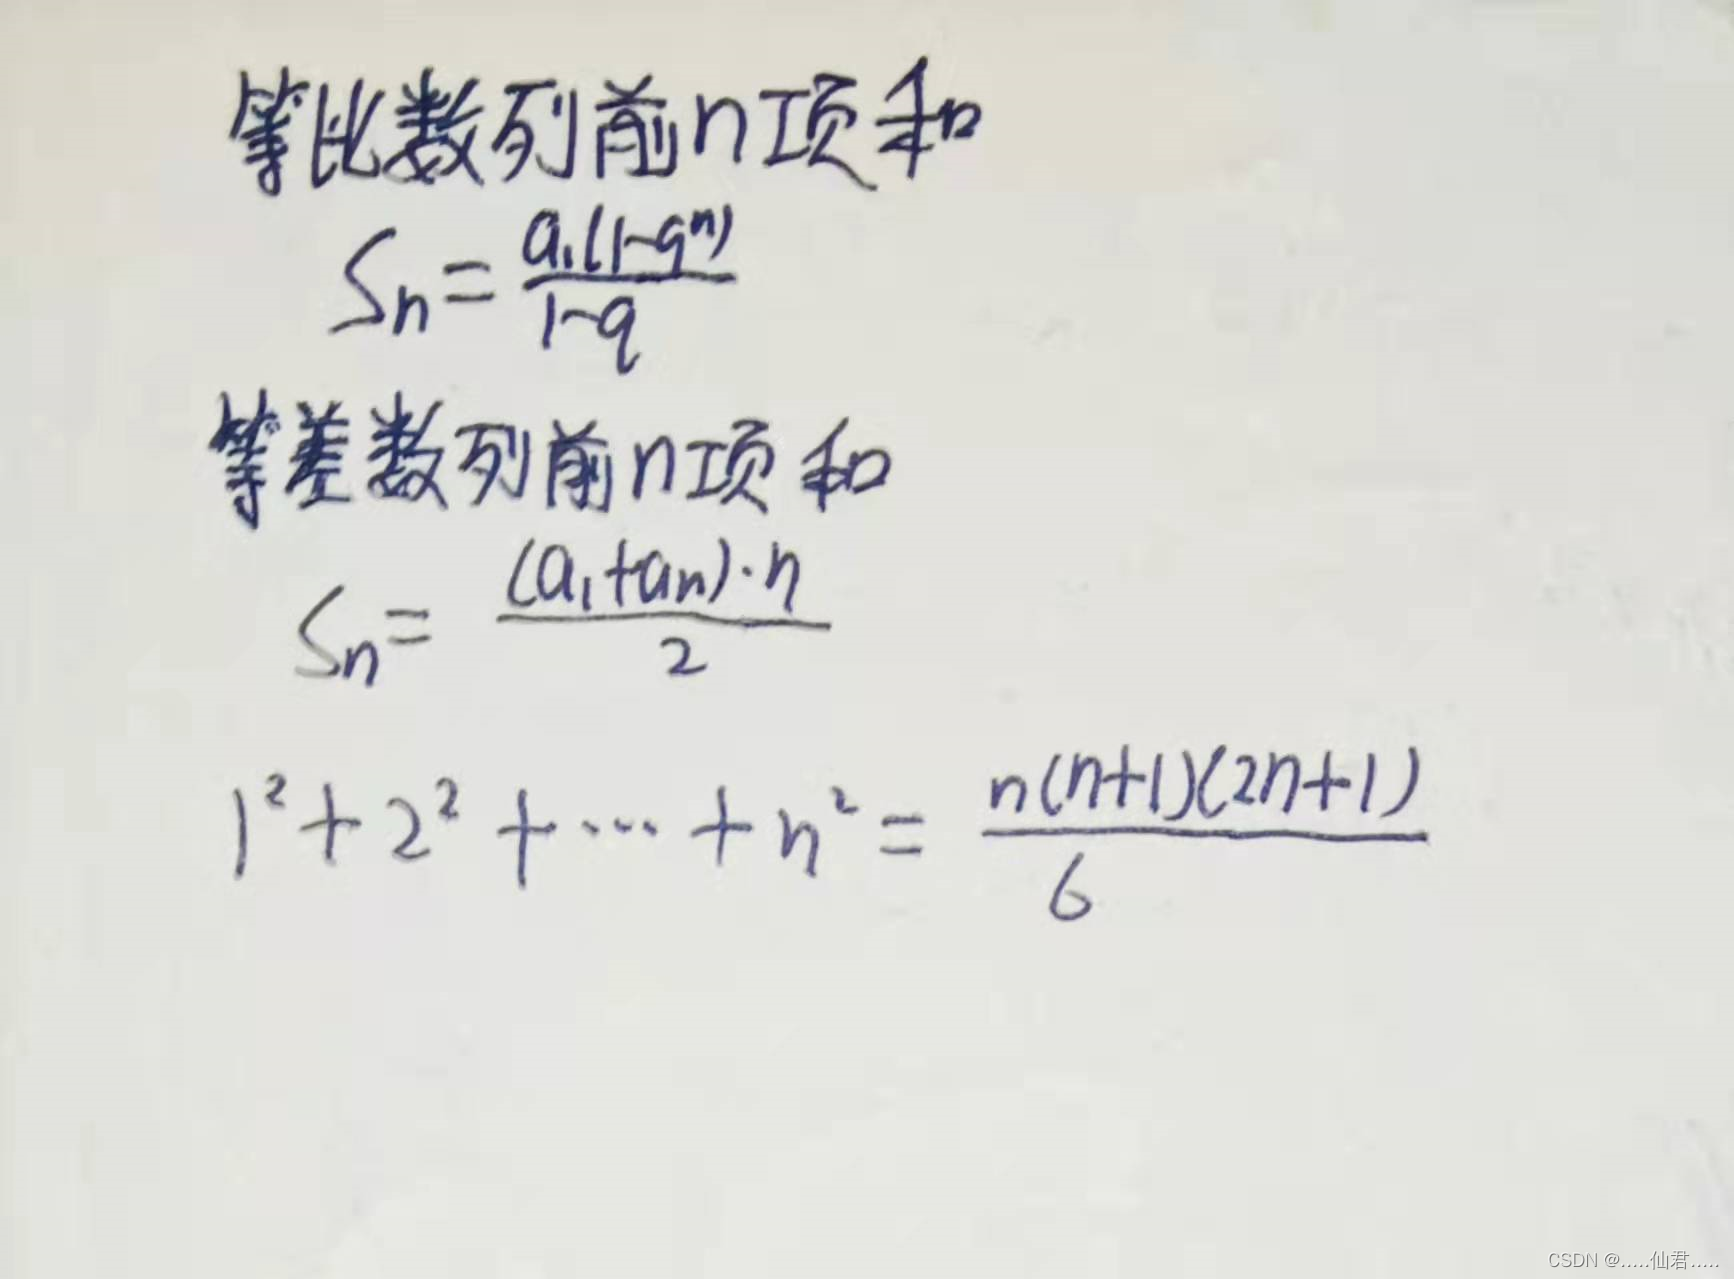 等比数列前n项和
Sn=a₁(1-qⁿ)/1-q
等差数列前n项和
Sn=(a₁+an)·n/2
1²+2²+···+n²=n(n+1)(2n+1)/6
CSDN @.....仙君.....